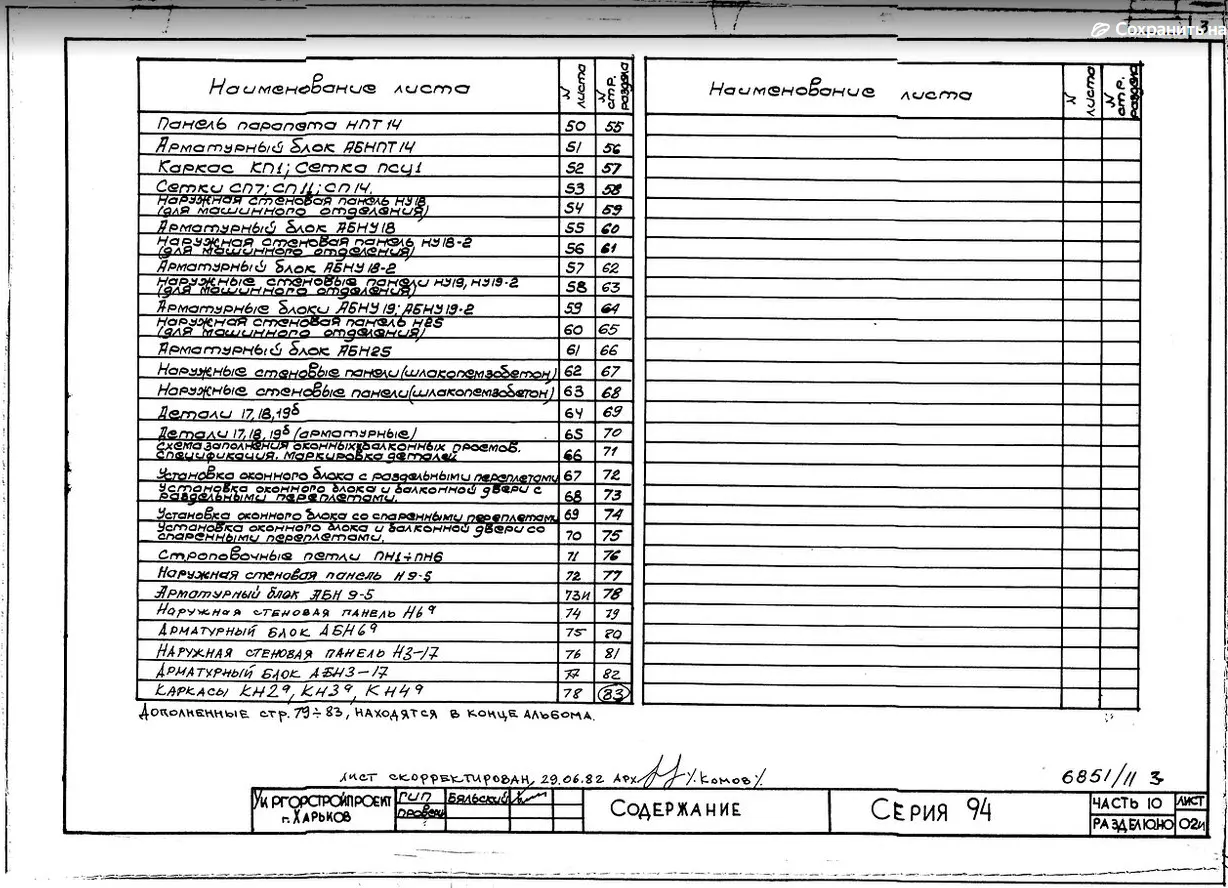 Сохранить на
3
Наименование листа N листа N стр. раздела
Наименование листа N листа N стр. раздела
Панель парапета НПТ 14 50 55
Арматурный блок АБНПТ 14 51 56
Каркас КП1; Сетка ПСЦ1 52 57
Сетки СП7; СП 11; СП 14. 53 58
Наружная стеновая панель НУ18
(для машинного отделения) 54 59
Арматурный блок АБНУ18 55 60
Наружная стеновая панель НУ18-2
(для машинного отделения) 56 61
Арматурный блок АБНУ18-2 57 62
Наружные стеновые панели НУ19, НУ19-2
(для машинного отделения) 58 63
Арматурные блоки АБНУ19; АБНУ19-2 59 64
Наружная стеновая панель Н25
(для машинного отделения) 60 65
Арматурный блок АБН25 61 66
Наружные стеновые панели (шлакопемзобетон) 62 67
Наружные стеновые панели (шлакопемзобетон) 63 68
Детали 17, 18, 19б 64 69
Детали 17, 18, 19б (арматурные) 65 70
Схема заполнения оконных и балконных проемов.
Спецификация. Маркировка деталей. 66 71
Установка оконного блока с раздельными переплетами 67 72
Установка оконного блока и балконной двери с
раздельными переплетами. 68 73
Установка оконного блока со спаренными переплетами 69 74
Установка оконного блока и балконной двери со
спаренными переплетами. 70 75
Строповочные петли ПН1÷ПН6 71 76
Наружная стеновая панель Н 9-5 72 77
Арматурный блок АБН 9-5 73и 78
Наружная стеновая панель Н6а 74 79
Арматурный блок АБН6а 75 80
Наружная стеновая панель Н3-17 76 81
Арматурный блок АБН3-17 77 82
Каркасы КН2а, КН3а, КН4а 78 83
Дополненные стр. 79÷83, находятся в конце альбома.
Лист скорректирован, 29.06.82 арх. /Комов/
6851/11 3
УкрГорстройпроект
г. Харьков
ГИП Бяльский
Провери
Содержание
Серия 94
Часть 10 Лист
Раздел 10НО 02и